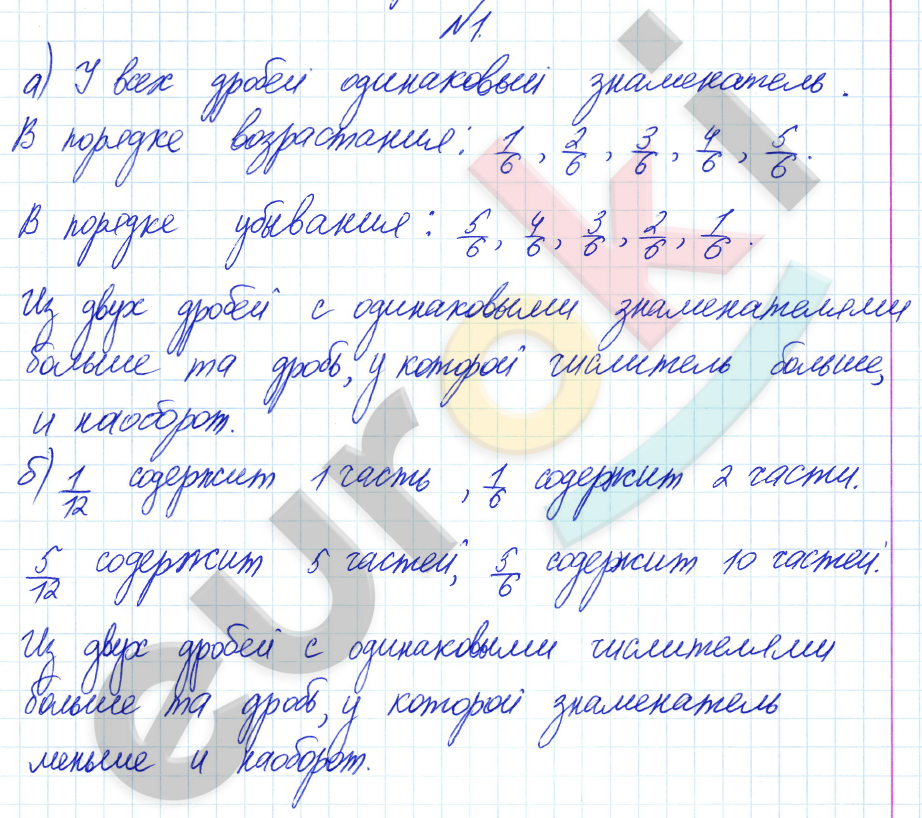 №1.
а) У всех дробей одинаковый знаменатель.
В порядке возрастания: 1/6, 2/6, 3/6, 4/6, 5/6.
В порядке убывания: 5/6, 4/6, 3/6, 2/6, 1/6.
Из двух дробей с одинаковыми знаменателями
больше та дробь, у которой числитель больше,
и наоборот.
б) 1/12 содержит 1 часть, 1/6 содержит 2 части.
5/12 содержит 5 частей, 5/6 содержит 10 частей.
Из двух дробей с одинаковыми числителями
больше та дробь, у которой знаменатель
меньше и наоборот.
euroki